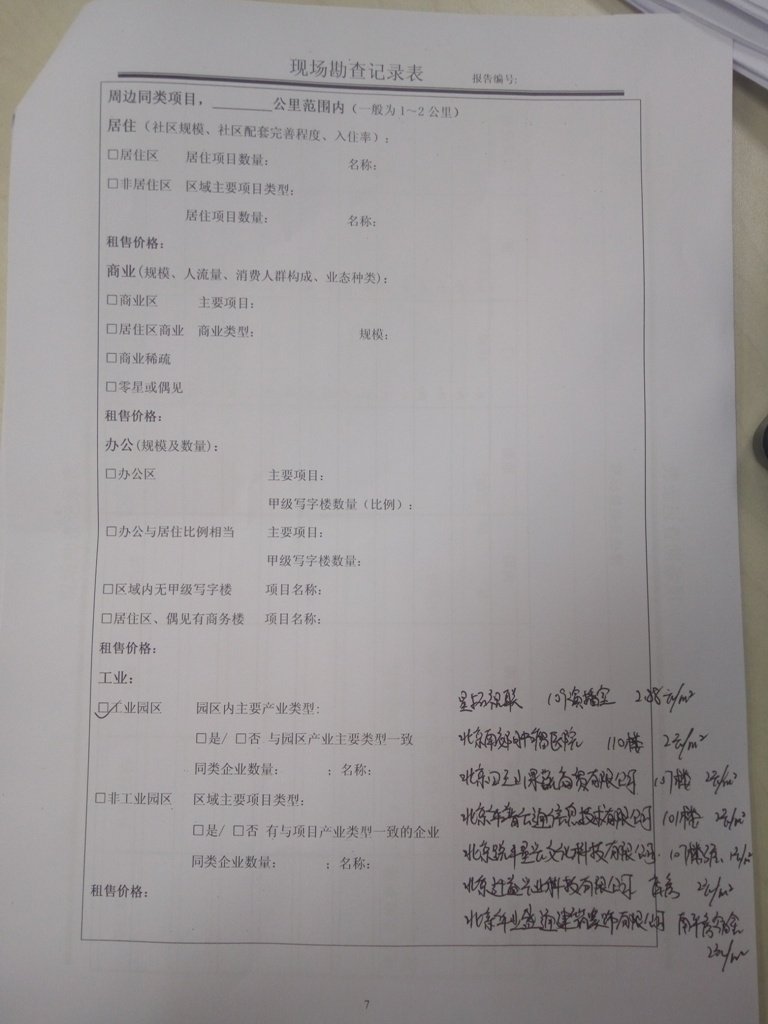 现场勘查记录表
报告编号:
周边同类项目，______公里范围内（一般为 1～2 公里）
居住（社区规模、社区配套完善程度、入住率）:
□居住区 居住项目数量: 名称:
□非居住区 区域主要项目类型:
居住项目数量: 名称:
租售价格:
商业(规模、人流量、消费人群构成、业态种类):
□商业区 主要项目:
□居住区商业 商业类型: 规模:
□商业稀疏
□零星或偶见
租售价格:
办公(规模及数量):
□办公区 主要项目:
甲级写字楼数量（比例）:
□办公与居住比例相当 主要项目:
甲级写字楼数量:
□区域内无甲级写字楼 项目名称:
□居住区、偶见有商务楼 项目名称:
租售价格:
工业:
□工业园区 园区内主要产业类型: 109演播室 元/m²
□是/ □否 与园区产业主要类型一致 北京南郊肿瘤医院 110楼 2元/m²
同类企业数量: ; 名称: 有限公司 107楼 2元/m²
□非工业园区 区域主要项目类型: 信息技术有限公司 101楼 2元/m²
□是/ □否 有与项目产业类型一致的企业 文化科技有限公司 107楼
同类企业数量: ; 名称: 兴业科技有限公司 2元/m²
租售价格: 建筑装饰有限公司
2元/m²
7